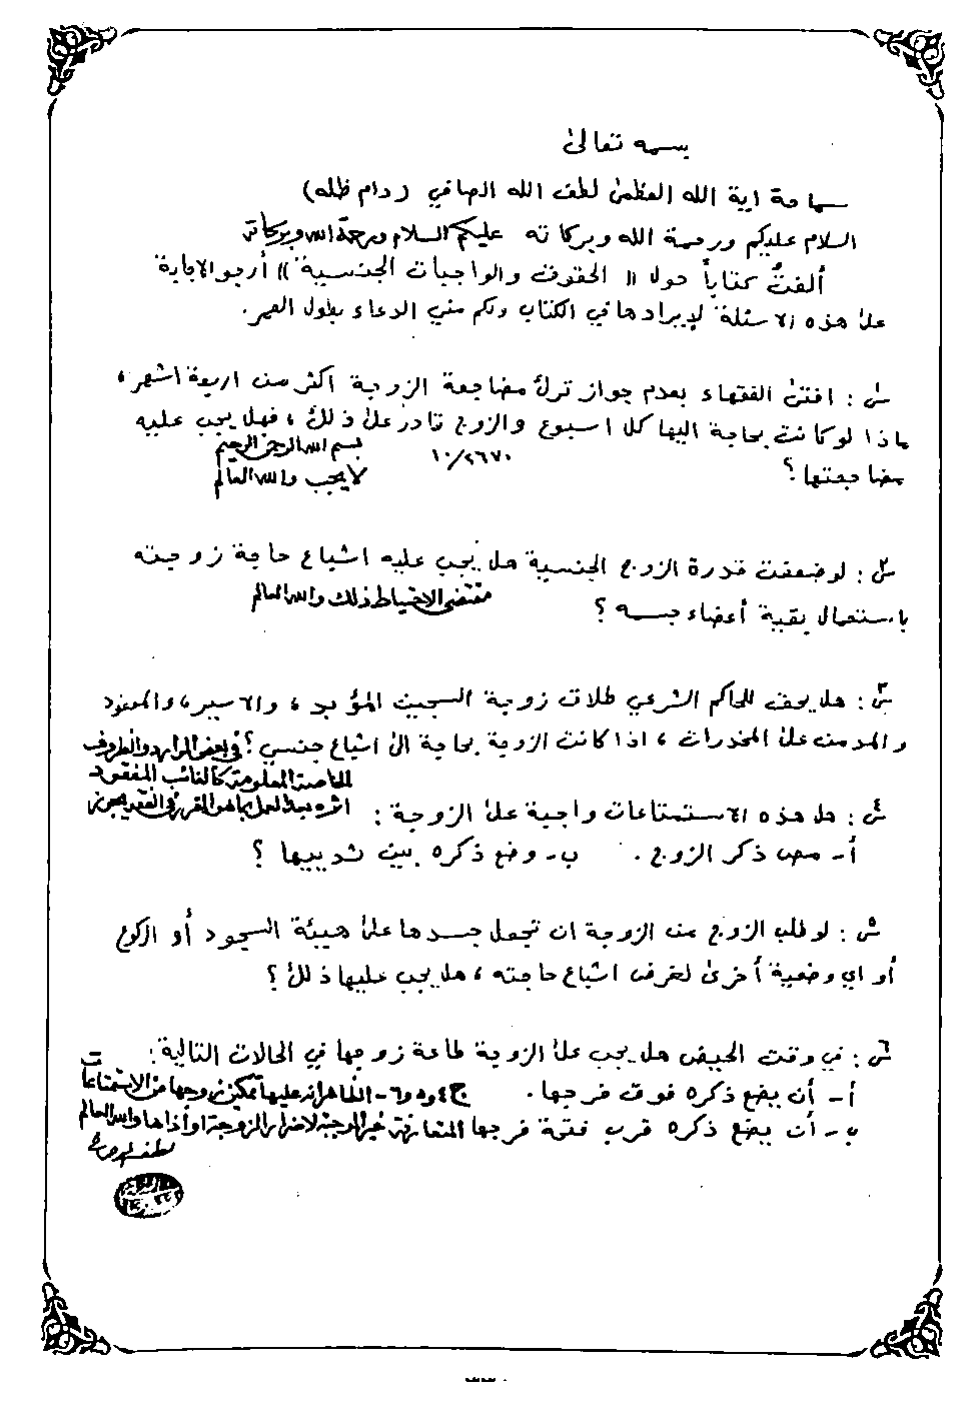 بسمه تعالى
سماحة اية الله العظمى لطف الله الصافي (دام ظله)
السلام عليكم ورحمة الله وبركاته عليكم السلام ورحمة الله وبركاته
ألفتُ كتاباً حول (( الحقوق والواجبات الجنسية )) أرجو الاجابة
على هذه الاسئلة لإيرادها في الكتاب ولكم مني الدعاء بطول العمر.
س١: افتى الفقهاء بعدم جواز ترك مضاجعة الزوجة اكثر من اربعة اشهر،
ماذا لو كانت بحاجة اليها كل اسبوع والزوج قادر على ذلك، فهل يجب عليه
مضاجعتها؟
١٠/٢٦٧٠
بسم الله الرحمن الرحيم
لا يجب والله العالم
س٢: لو ضعفت قدرة الزوج الجنسية هل يجب عليه اشباع حاجة زوجته
باستعمال بقية أعضاء جسمه؟
مقتضى الاحتياط ذلك والله العالم
س٣: هل يحق للحاكم الشرعي طلاق زوجة السجين المؤبد، والاسير، والمفقود
والمدمن على المخدرات، اذا كانت الزوجة بحاجة الى اشباع جنسي؟ في بعض الموارد والظروف
الخاصة المعلومة كالغائب المفقود
اثره بعد العمل بما هو المقرر في الفقه يجوز
س٤: هل هذه الاستمتاعات واجبة على الزوجة:
أ- مص ذكر الزوج. ب- وضع ذكره بين ثدييها؟
س٥: لو طلب الزوج من الزوجة ان تجعل جسدها على هيئة السجود أو الركوع
أو اي وضعية أخرى لغرض اشباع حاجته، هل يجب عليها ذلك؟
س٦: في وقت الحيض هل يجب على الزوجة طاعة زوجها في الحالات التالية:
أ- أن يضع ذكره فوق فرجها.
ب- أن يضع ذكره قرب فتحة فرجها
ج٤ و٥ و٦- الظاهر انه عليها تمكين زوجها من الاستمتاعات
المتعارفة غير الموجبة لاضرار الزوجة او أذاها والله العالم
لطف الله صافي
٣٣٠